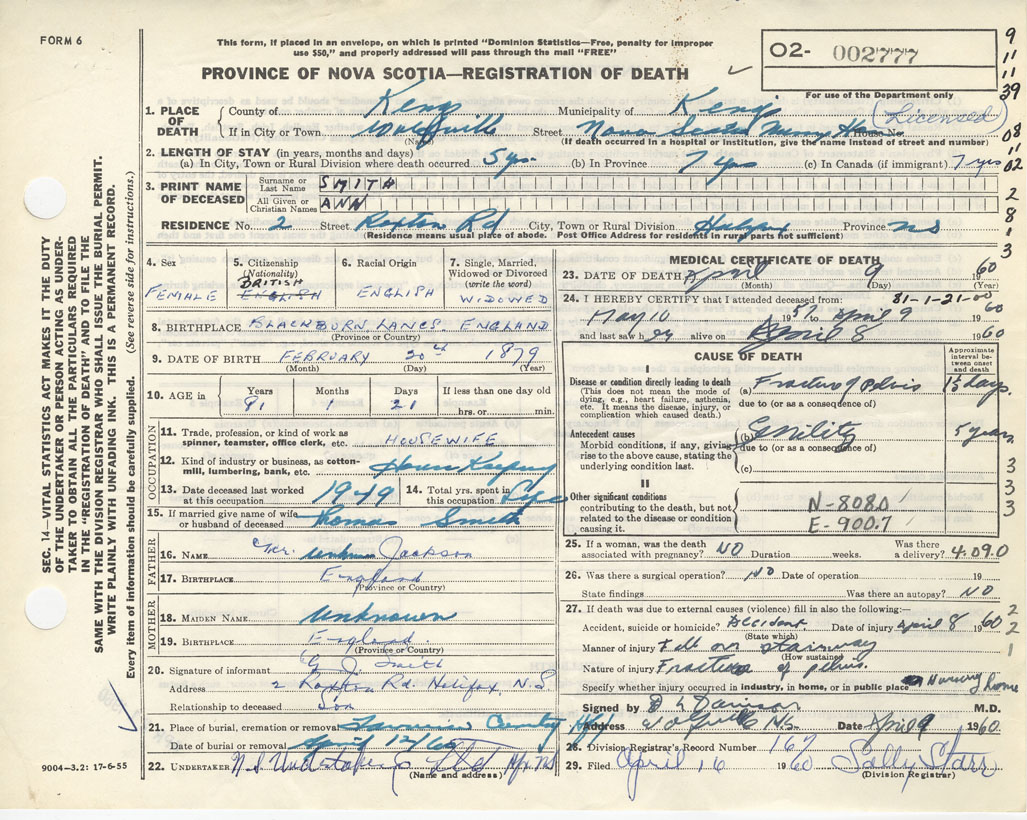 FORM 6
This form, if placed in an envelope, on which is printed "Dominion Statistics—Free, penalty for improper
use $50," and properly addressed will pass through the mail "FREE"
O2- 002777
PROVINCE OF NOVA SCOTIA—REGISTRATION OF DEATH
For use of the Department only
9
11
11
39
08
11
02
2
8
1
3
1. PLACE OF DEATH
County of Kings Municipality of Kings (Licensed)
If in City or Town Wolfville Street Nova Scotia Nursing Ho House No.
(Name) (If death occurred in a hospital or institution, give the name instead of street and number)
2. LENGTH OF STAY (in years, months and days)
(a) In City, Town or Rural Division where death occurred 5 yrs. (b) In Province 7 yrs (c) In Canada (if immigrant) 7 yrs
3. PRINT NAME OF DECEASED
Surname or Last Name SMITH
All Given or Christian Names ANN
RESIDENCE No. 2 Street Roxton Rd City, Town or Rural Division Halifax Province NS
(Residence means usual place of abode. Post Office Address for residents in rural parts not sufficient)
SEC. 14—VITAL STATISTICS ACT MAKES IT THE DUTY
OF THE UNDERTAKER OR PERSON ACTING AS UNDER-
TAKER TO OBTAIN ALL THE PARTICULARS REQUIRED
IN THE "REGISTRATION OF DEATH" AND TO FILE THE
SAME WITH THE DIVISION REGISTRAR WHO SHALL ISSUE THE BURIAL PERMIT.
WRITE PLAINLY WITH UNFADING INK. THIS IS A PERMANENT RECORD.
Every item of information should be carefully supplied. (See reverse side for instructions.)
4. Sex FEMALE
5. Citizenship (Nationality) BRITISH ENGLISH
6. Racial Origin ENGLISH
7. Single, Married, Widowed or Divorced (write the word) WIDOWED
8. BIRTHPLACE BLACKBURN LANCS. ENGLAND
(Province or Country)
9. DATE OF BIRTH FEBRUARY 20th 1879
(Month) (Day) (Year)
10. AGE in Years 81 Months 1 Days 21 If less than one day old
hrs. or min.
OCCUPATION
11. Trade, profession, or kind of work as spinner, teamster, office clerk, etc. HOUSEWIFE
12. Kind of industry or business, as cotton-mill, lumbering, bank, etc. House Keeping
13. Date deceased last worked at this occupation 1949
14. Total yrs. spent in this occupation Life
15. If married give name of wife or husband of deceased Thomas Smith
FATHER
16. NAME Mr. Unknown Jackson
17. BIRTHPLACE England
(Province or Country)
MOTHER
18. MAIDEN NAME Unknown
19. BIRTHPLACE England
(Province or Country)
20. Signature of informant G J Smith
Address 2 Roxton Rd. Halifax, N.S
Relationship to deceased Son
21. Place of burial, cremation or removal Hfx
Date of burial or removal April 12/60
22. UNDERTAKER N.S Undertaking Ltd Hfx NS
(Name and address)
9004—3.2: 17-6-55
MEDICAL CERTIFICATE OF DEATH
23. DATE OF DEATH April 9 1960
(Month) (Day) (Year)
24. I HEREBY CERTIFY that I attended deceased from: 81-1-21-00
May 10 1957 to April 9 1960
and last saw her alive on April 8 1960
CAUSE OF DEATH
Approximate interval between onset and death
I
Disease or condition directly leading to death
(This does not mean the mode of
dying, e.g., heart failure, asthenia,
etc. It means the disease, injury, or
complication which caused death.)
(a) Fracture of Pelvis 1½ days.
due to (or as a consequence of)
Antecedent causes
Morbid conditions, if any, giving
rise to the above cause, stating the
underlying condition last.
(b) Senility 5 years
due to (or as a consequence of)
(c)
II
Other significant conditions
contributing to the death, but not
related to the disease or condition
causing it.
N-8080
E-900.7
3
3
3
3
25. If a woman, was the death associated with pregnancy? NO Duration weeks. Was there a delivery? 4.09.0
26. Was there a surgical operation? NO Date of operation 19
State findings Was there an autopsy? NO
27. If death was due to external causes (violence) fill in also the following:—
Accident, suicide or homicide? Accident Date of injury April 8 1960
(State which)
Manner of injury Fell on stairway
(How sustained)
Nature of injury Fracture of pelvis.
Specify whether injury occurred in industry, in home, or in public place Nursing home
2
2
1
Signed by D L Davison M.D.
Address Wolfville NS. Date April 9 1960
28. Division Registrar's Record Number 167
29. Filed April 16 1960 Sally Starr
(Division Registrar)